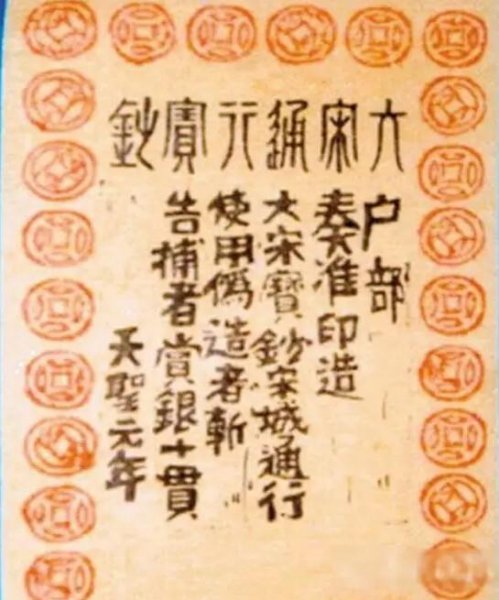 大宋通行寶鈔
户部
奏准印造
大宋寶鈔宋城通行
使用偽造者斬
告捕者賞銀十貫
天聖元年